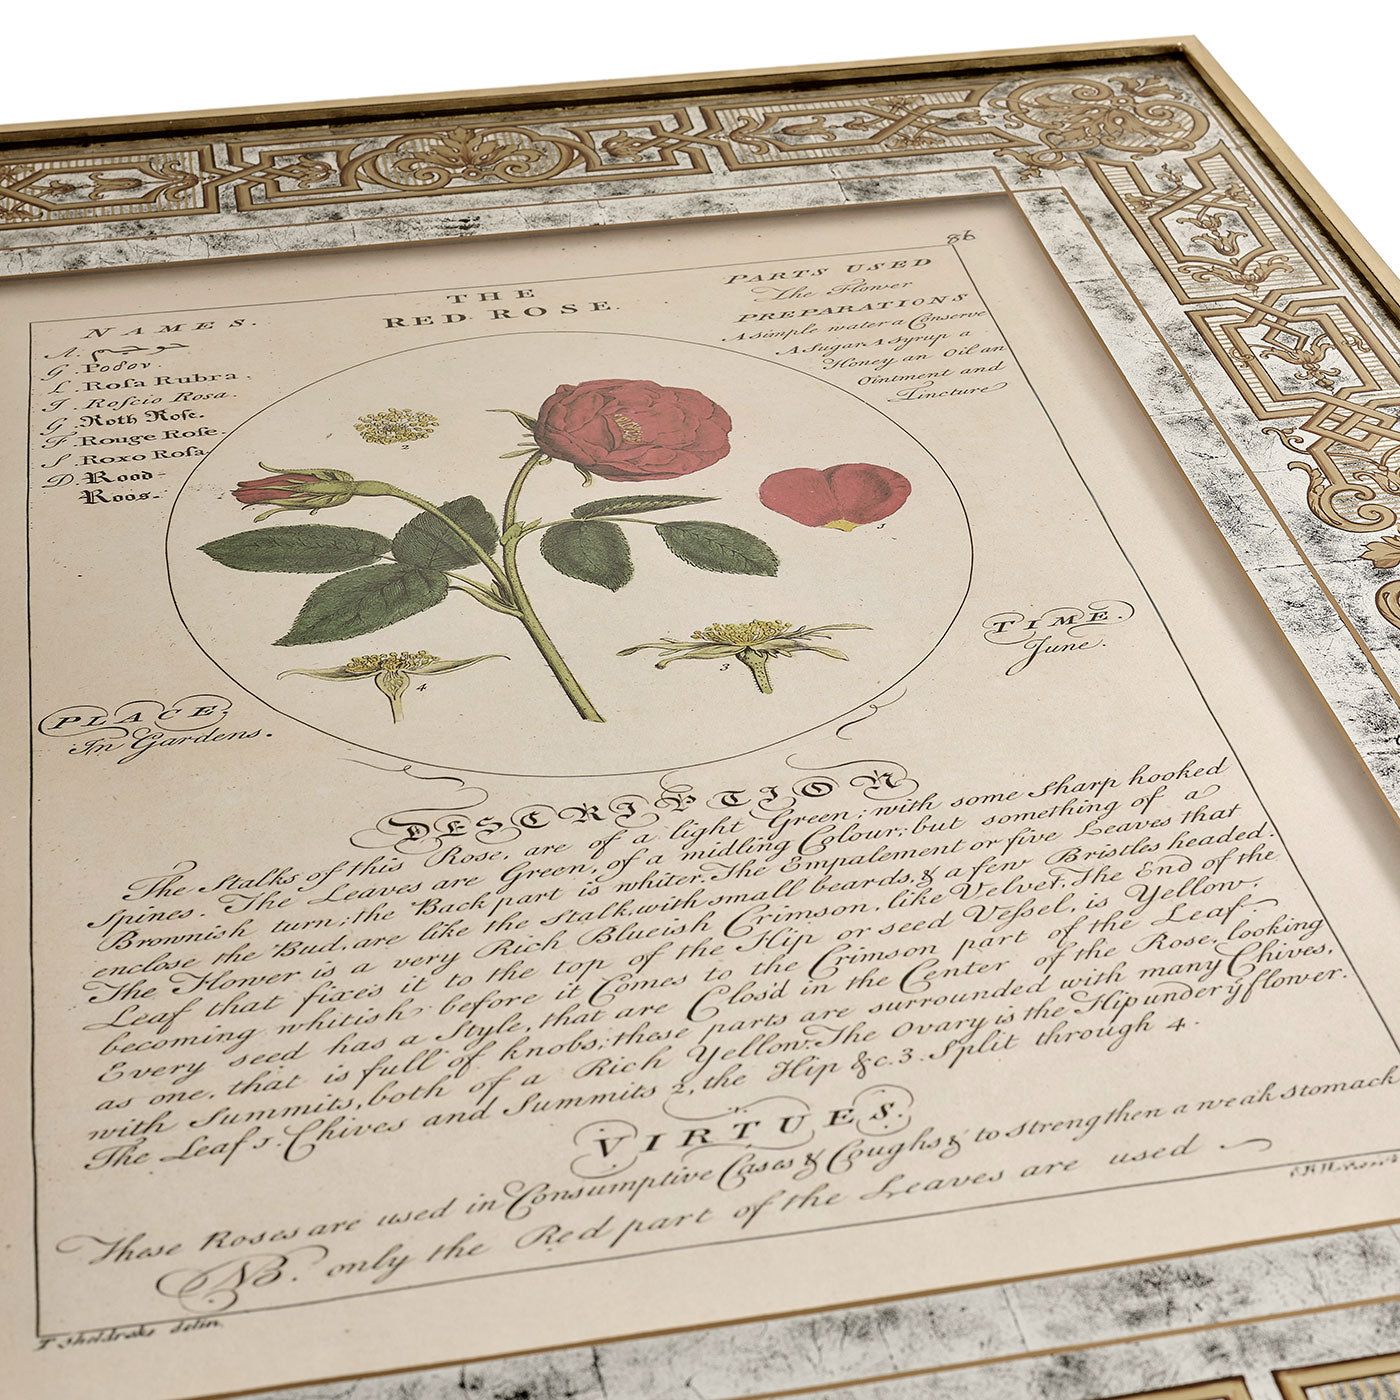 86
THE
RED ROSE.
NAMES.
A.
G. Ροδον.
L. Roſa Rubra.
I. Roſcio Rosa.
G. Roth Roſe.
F. Rouge Roſe.
S. Roxo Roſa
D. Rood-
Roos.
PARTS USED
The Flower
PREPARATIONS
A simple water a Conserve
A Sugar A syrup a
Honey an Oil an
Ointment and
Tincture
2
5
3
4
TIME.
June.
PLACE.
In Gardens.
DESCRIPTION
The Stalks of this Rose, are of a light Green; with some sharp hooked
Spines. The Leaves are Green, of a midling Colour; but something of a
Brownish turn; the Back part is whiter. The Empalement or five Leaves that
enclose the Bud, are like the Stalk, with small beards, & a few Bristles headed.
The Flower is a very Rich Blueish Crimson, like Velvet, The End of the
Leaf that fixes it to the top of the Hip or seed Veſsel, is Yellow,
becoming whitish before it Comes to the Crimson part of the Leaf.
Every seed has a Style, that are Clos'd in the Center of the Rose, looking
as one, that is full of knobs; these parts are surrounded with many Chives,
with Summits, both of a Rich Yellow. The Ovary is the Hip under ÿ flower.
The Leaf 5. Chives and Summits 2, the Hip &c. 3. Split through 4.
VIRTUES.
These Roses are used in Consumptive Cases & Coughs & to strengthen a weak stomach
NB. only the Red part of the Leaves are used
T Sheldrake delin.